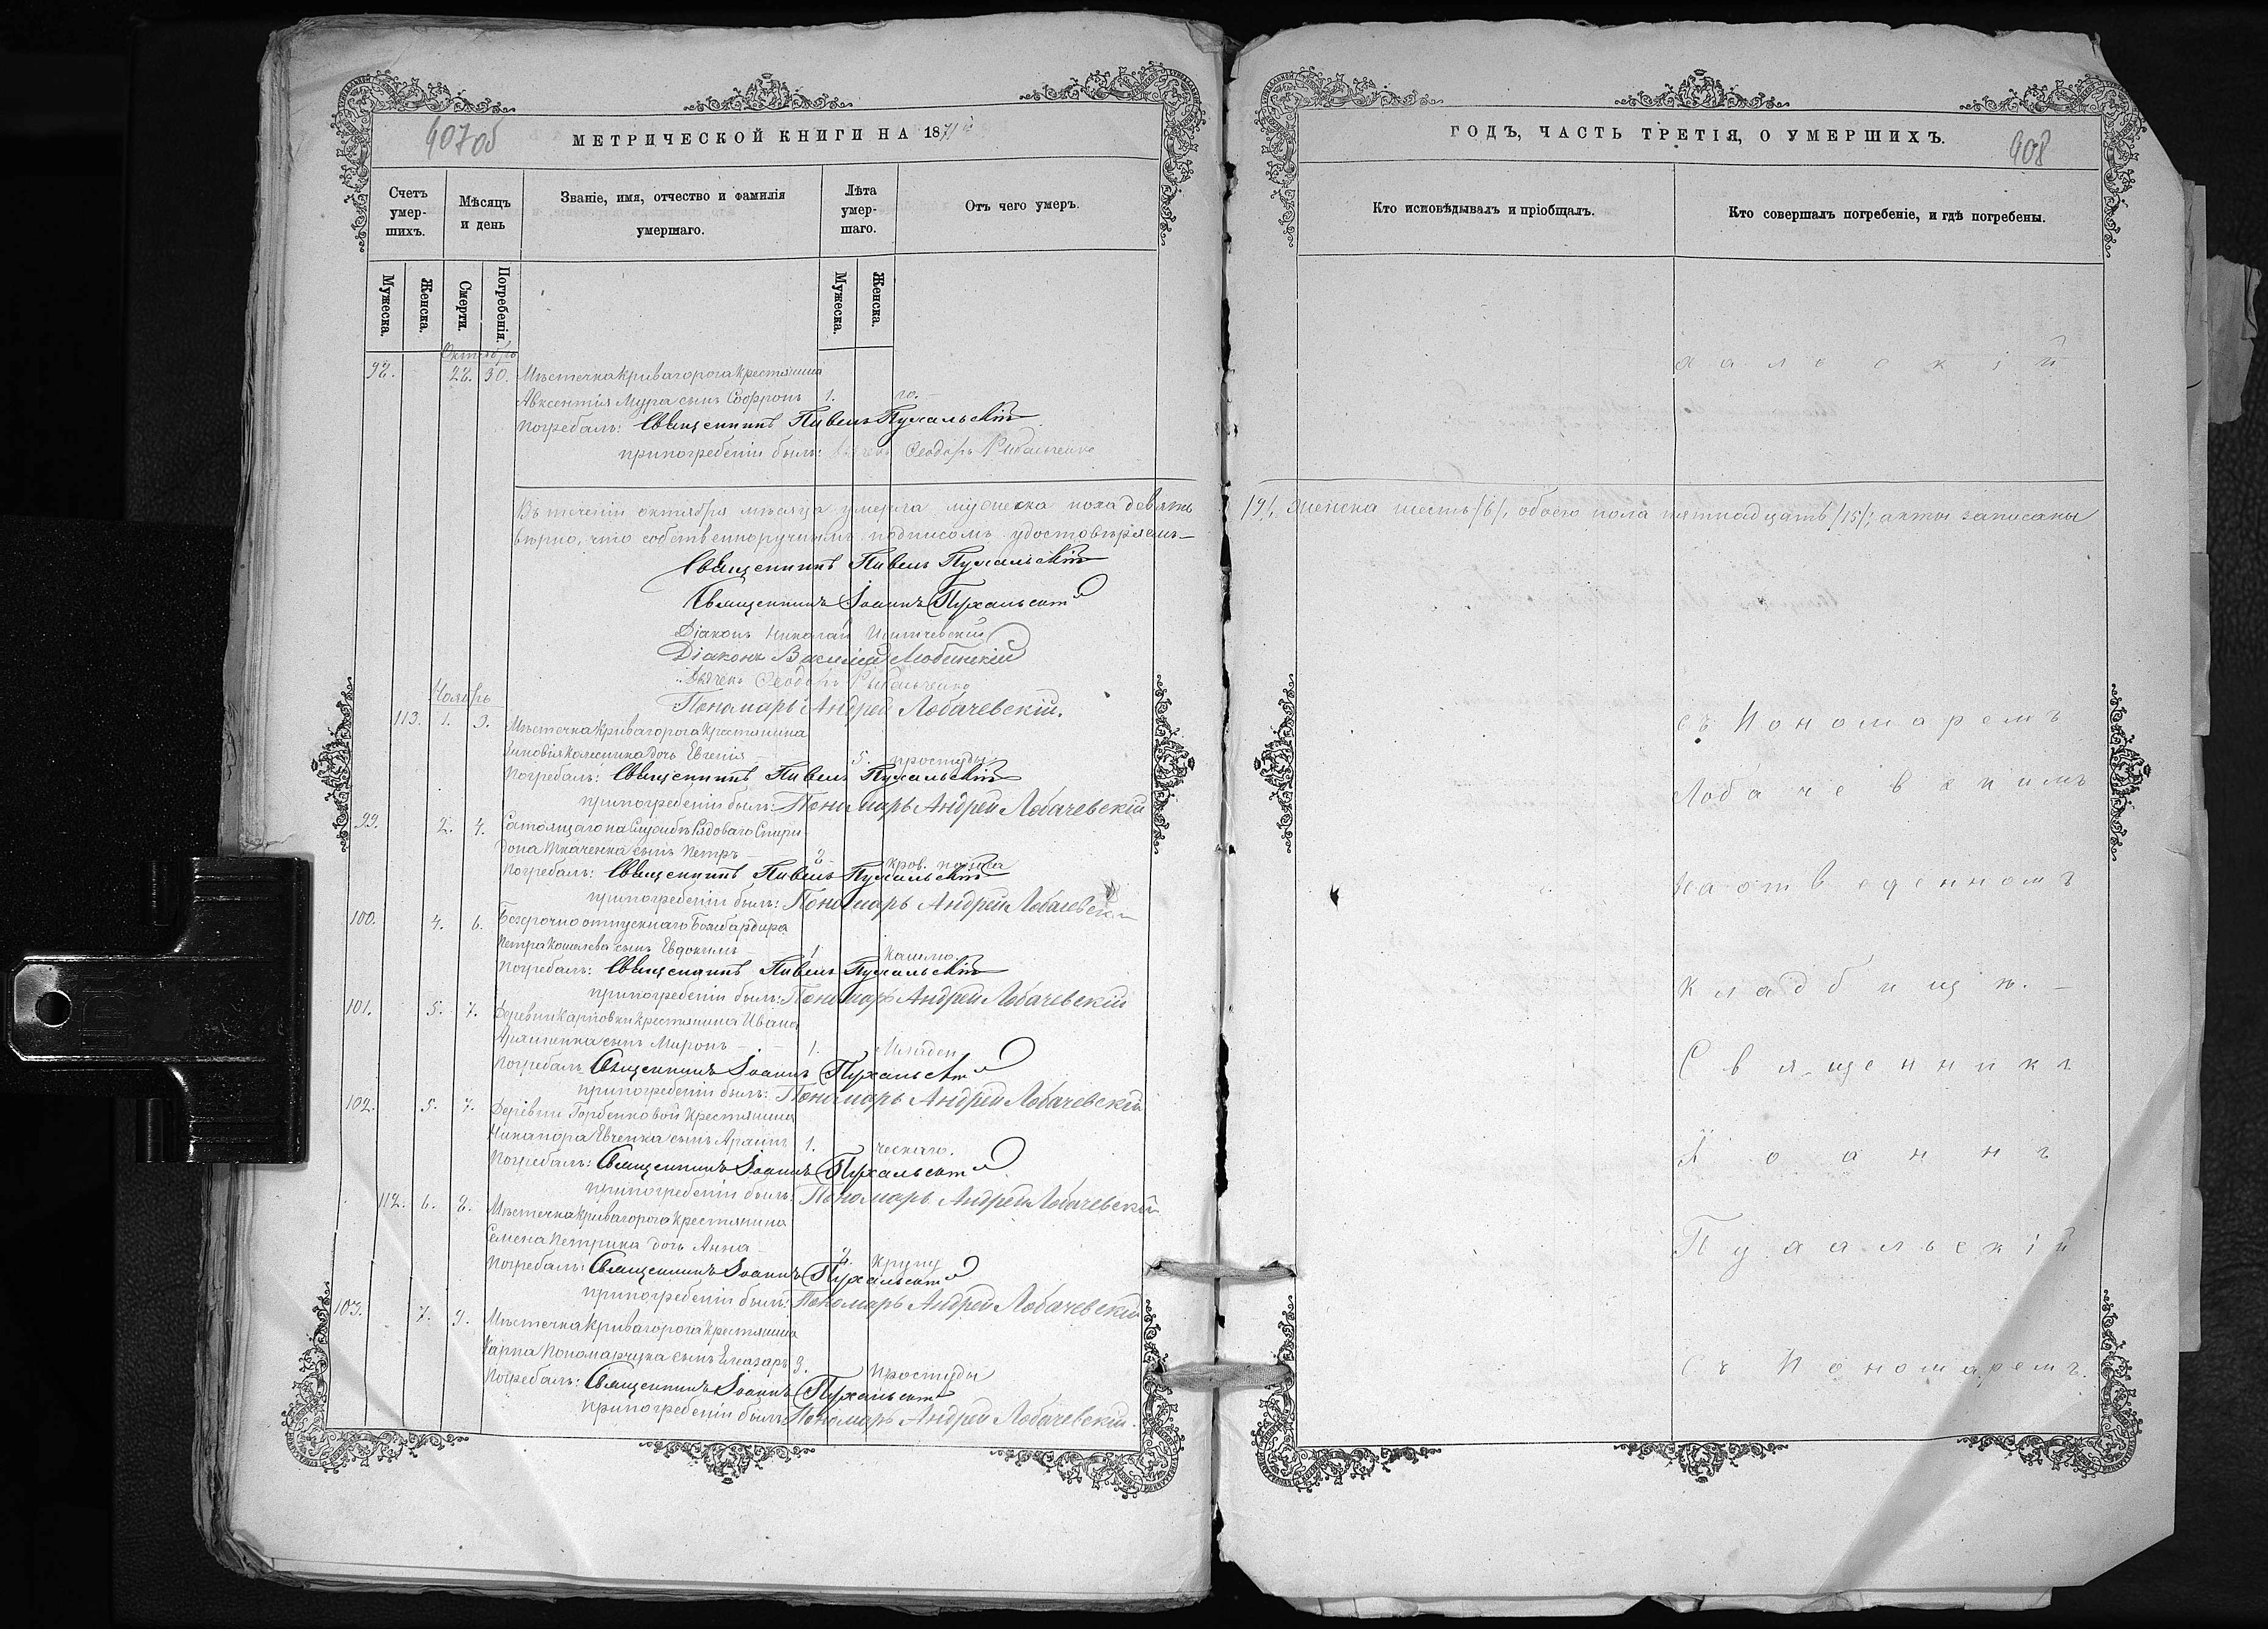 407об
МЕТРИЧЕСКОЙ КНИГИ НА 1871й
Счетъ умер-шихъ.
Мѣсяцъ и день
Званіе, имя, отчество и фамилія умершаго.
Лѣта умер-шаго.
Отъ чего умеръ.
Мужеска.
Женска.
Смерти.
Погребенія.
Мужеска.
Женска.
Октябрь
98. 28. 30. Мѣстечка Кривагорога Крестянина
Авксентія Мура сынъ Софронъ 1. го.
Погребалъ: Священникъ Павелъ Пухальскій
при погребеніи былъ: Дьячекъ Ѳеодоръ Рыбальченко
Въ теченіи октября мѣсяца умерло мужеска пола девять
вѣрно, что собственноручнымъ подписомъ удостовѣряемъ
Священникъ Павелъ Пухальскій
Священникъ Іоаннъ Пухальскій
Діаконъ Николай
Діаконъ Василій Любинскій
Дьячекъ Ѳеодоръ Рыбальченко
Пономарь Андрей Лобачевскій.
Ноябрь
113. 1. 3. Мѣстечка Кривагорога Крестянина
Зиновія Колесника дочь Евгенія 5. простуды
Погребалъ: Священникъ Павелъ Пухальскій
при погребеніи былъ: Пономарь Андрей Лобачевскій
99. 2. 4. Состоящаго на Службѣ Рядоваго Спири-
дона Ткаченка сынъ Петръ 2 кров. поноса
Погребалъ: Священникъ Павелъ Пухальскій
при погребеніи былъ: Пономарь Андрей Лобачевскій
100. 4. 6. Безсрочно отпускнаго Бомбардира
Петра Кошелева сынъ Евдокимъ 1. Кашлю
Погребалъ: Священникъ Павелъ Пухальскій
при погребеніи былъ: Пономарь Андрей Лобачевскій
101. 5. 7. Деревни Карповки Крестянина Ивана
сынъ Миронъ 1. Младен
Погребалъ Священникъ Іоаннъ Пухальскій
при погребеніи былъ: Пономарь Андрей Лобачевскій
102. 5. 7. Деревни Горбенковой Крестянина
Никанора Евченка сынъ 1. ческаго.
Погребалъ: Священникъ Іоаннъ Пухальскій
при погребеніи былъ: Пономарь Андрей Лобачевскій
112. 6. 8. Мѣстечка Кривагорога Крестянина
Семена Петрика дочь Анна 2. Крупу
Погребалъ: Священникъ Іоаннъ Пухальскій
при погребеніи былъ: Пономарь Андрей Лобачевскій
103. 7. 9. Мѣстечка Кривагорога Крестянина
Карпа Пономарчука сынъ Елеазаръ 9. Простуды
Погребалъ: Священникъ Іоаннъ Пухальскій
при погребеніи былъ: Пономарь Андрей Лобачевскій.
ГОДЪ, ЧАСТЬ ТРЕТІЯ, О УМЕРШИХЪ.
408
Кто исповѣдывалъ и пріобщалъ.
Кто совершалъ погребеніе, и гдѣ погребены.
хальскій
/9/, женска шесть /6/, обоего пола пятнадцать /15/; акты записаны
съ Пономаремъ
Лобачевскимъ
на отведенномъ
Кладбищѣ. —
Священникъ
Іоаннъ
Пухальскій
съ Пономаремъ.